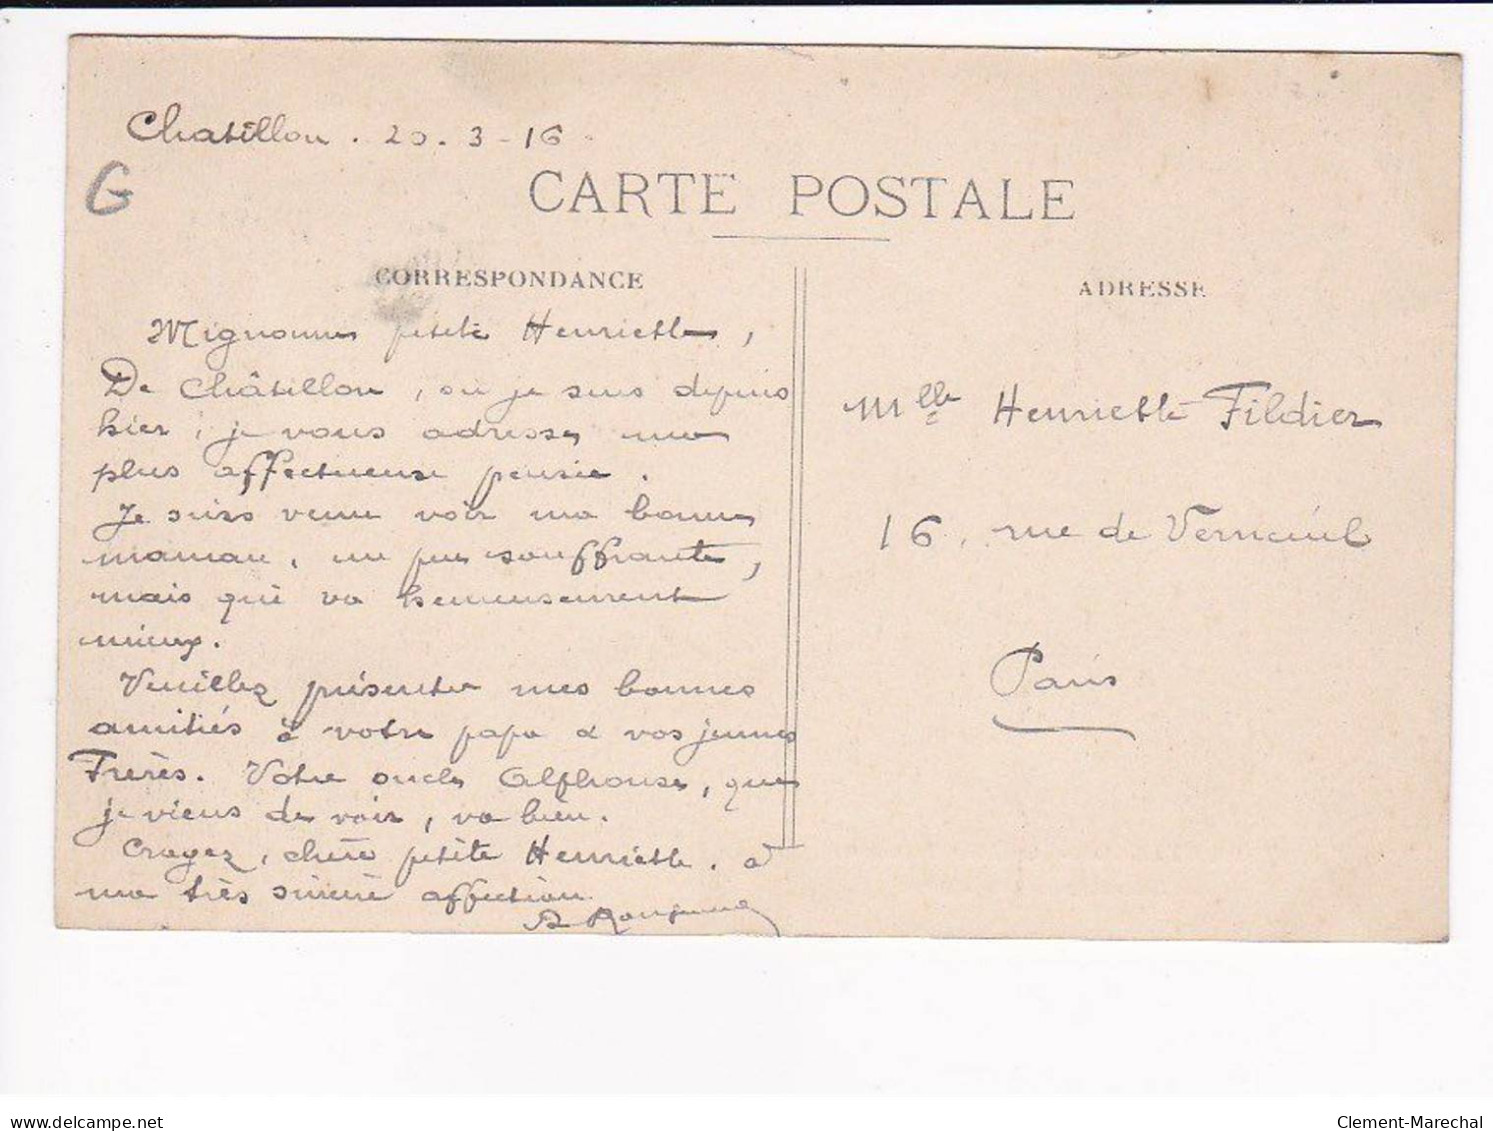 Chatillon . 20 . 3 - 16
G
CARTE POSTALE
CORRESPONDANCE
ADRESSE
Mignonne petite Henriette,
De Châtillon, où je suis depuis
hier, je vous adresse ma
plus affectueuse pensée.
Je suis venue voir ma bonne
maman, un peu souffrante,
mais qui va heureusement
mieux.
Veuillez présenter mes bonnes
amitiés à votre papa & vos jeunes
Frères. Votre oncle Alphonse, que
je viens de voir, va bien.
Croyez, chère petite Henriette, à
ma très sincère affection.
Mlle Henriette Fildier
16, rue de Verneuil
Paris
www.delcampe.net
Clement-Marechal